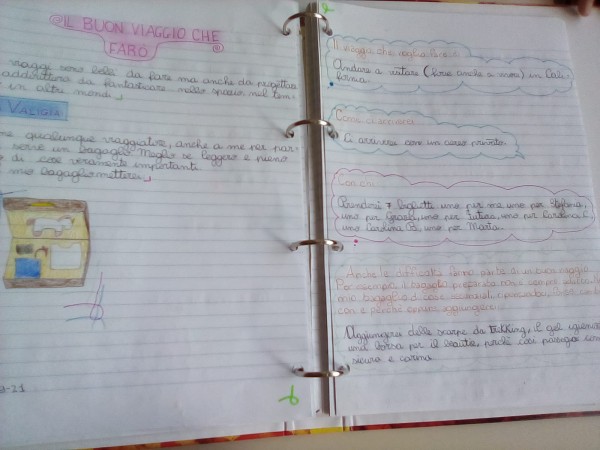 IL BUON VIAGGIO CHE
FARÒ
viaggi sono belli da fare ma anche da progettar
addirittura da fantasticare nello spazio nel tem
in altri mondi.
VALIGIA
me qualunque viaggiatore, anche a me per par
serve un bagaglio. Meglio se leggero e pieno
di cose veramente importanti.
mio bagaglio metterei
-21
Il viaggio che voglio fare è:
Andare a visitare (forse anche a
in Cali-
fornia.
Come ci arriverò
Ci arriverei con un aereo privato.
Con chi
Prenderei 7 biglietti uno per me uno per Stefania,
uno per Grace, uno per
uno per Carolina C,
uno Carolina B, uno per Marta.
Anche le difficoltà fanno parte di un buon viaggio.
Per esempio il bagaglio preparato non è sempre
mio bagaglio di cose
con e perché vorrei aggiungere
Aggiungerei delle scarpe da trekking, il gel igieniz
una borsa per il beauty, perché così
con
sicuro e carina